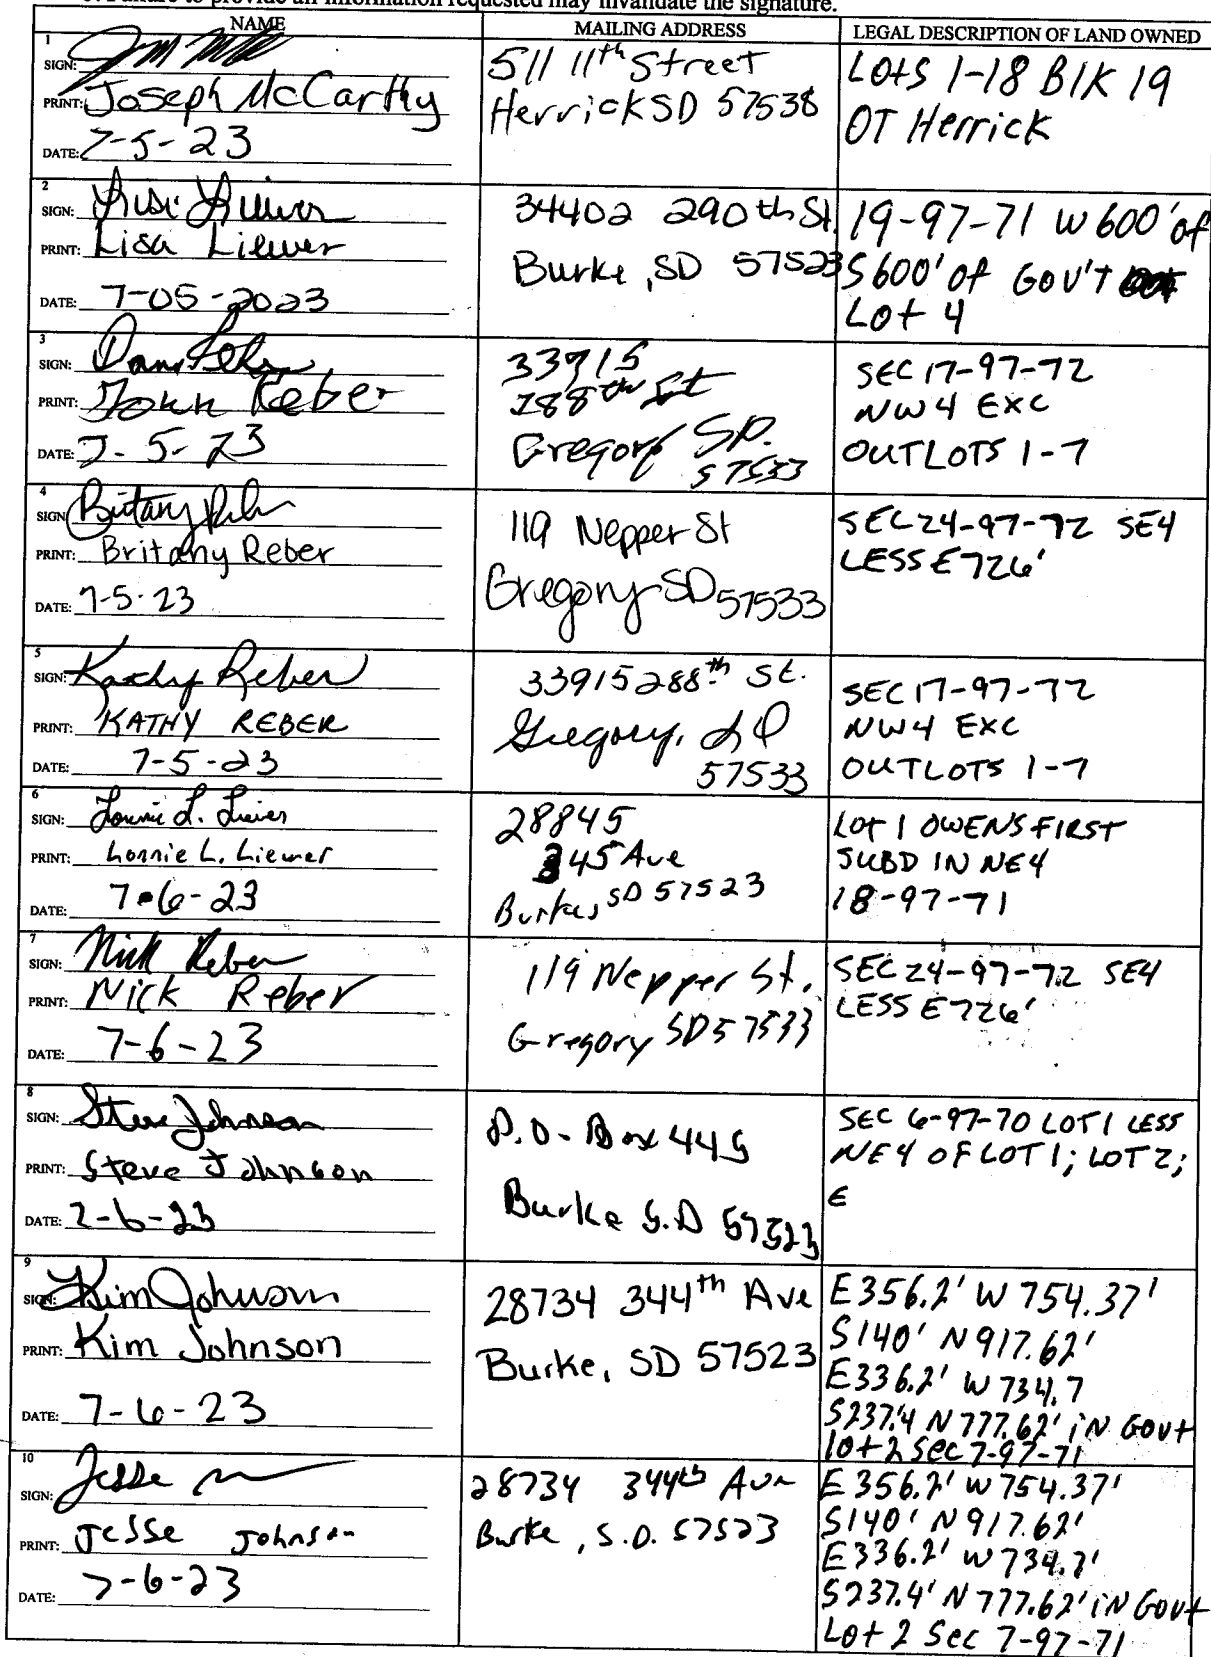 Failure to provide all information requested may invalidate the signature.
NAME MAILING ADDRESS LEGAL DESCRIPTION OF LAND OWNED
1
SIGN:
PRINT: Joseph McCarthy
DATE: 7-5-23
511 11th Street
Herrick SD 57538
LOtS 1-18 BlK 19
OT Herrick
2
SIGN: Lisa Liewer
PRINT: Lisa Liewer
DATE: 7-05-2023
34402 290th St.
Burke, SD 57523
19-97-71 W 600' of
S 600' of GOV'T
LOt 4
3
SIGN:
PRINT: John Reber
DATE: 7-5-23
33915
288th St
Gregory SD.
57533
SEC 17-97-72
NW4 EXC
OUTLOTS 1-7
4
SIGN: Brittany Reber
PRINT: Brittany Reber
DATE: 7-5-23
119 Nepper St
Gregory SD 57533
SEC 24-97-72 SE4
LESS E726'
5
SIGN: Kathy Reber
PRINT: KATHY REBER
DATE: 7-5-23
33915 288th St.
Gregory, SD
57533
SEC 17-97-72
NW4 EXC
OUTLOTS 1-7
6
SIGN: Lonnie L. Liewer
PRINT: Lonnie L. Liewer
DATE: 7-6-23
28845
345 Ave
Burke, SD 57523
LOT 1 OWENS FIRST
SUBD IN NE4
18-97-71
7
SIGN: Nick Reber
PRINT: Nick Reber
DATE: 7-6-23
119 Nepper St.
Gregory SD 57533
SEC 24-97-72 SE4
LESS E726'
8
SIGN: Steve Johnson
PRINT: Steve Johnson
DATE: 7-6-23
P.O. Box 445
Burke S.D 57523
SEC 6-97-70 LOT 1 LESS
NE4 OF LOT 1; LOT 2;
E
9
SIGN: Kim Johnson
PRINT: Kim Johnson
DATE: 7-6-23
28734 344th Ave
Burke, SD 57523
E 356.2' W 754.37'
S140' N 917.62'
E 336.2' W 734.7
S237.'4 N 777.62' iN GOVt
lot 2 Sec 7-97-71
10
SIGN: Jesse
PRINT: Jesse Johnson
DATE: 7-6-23
28734 344th Ave
Burke, S.D. 57523
E 356.2' W 754.37'
S140' N 917.62'
E 336.2' W 734.7'
S237.4' N 777.62' iN GOVt
Lot 2 Sec 7-97-71